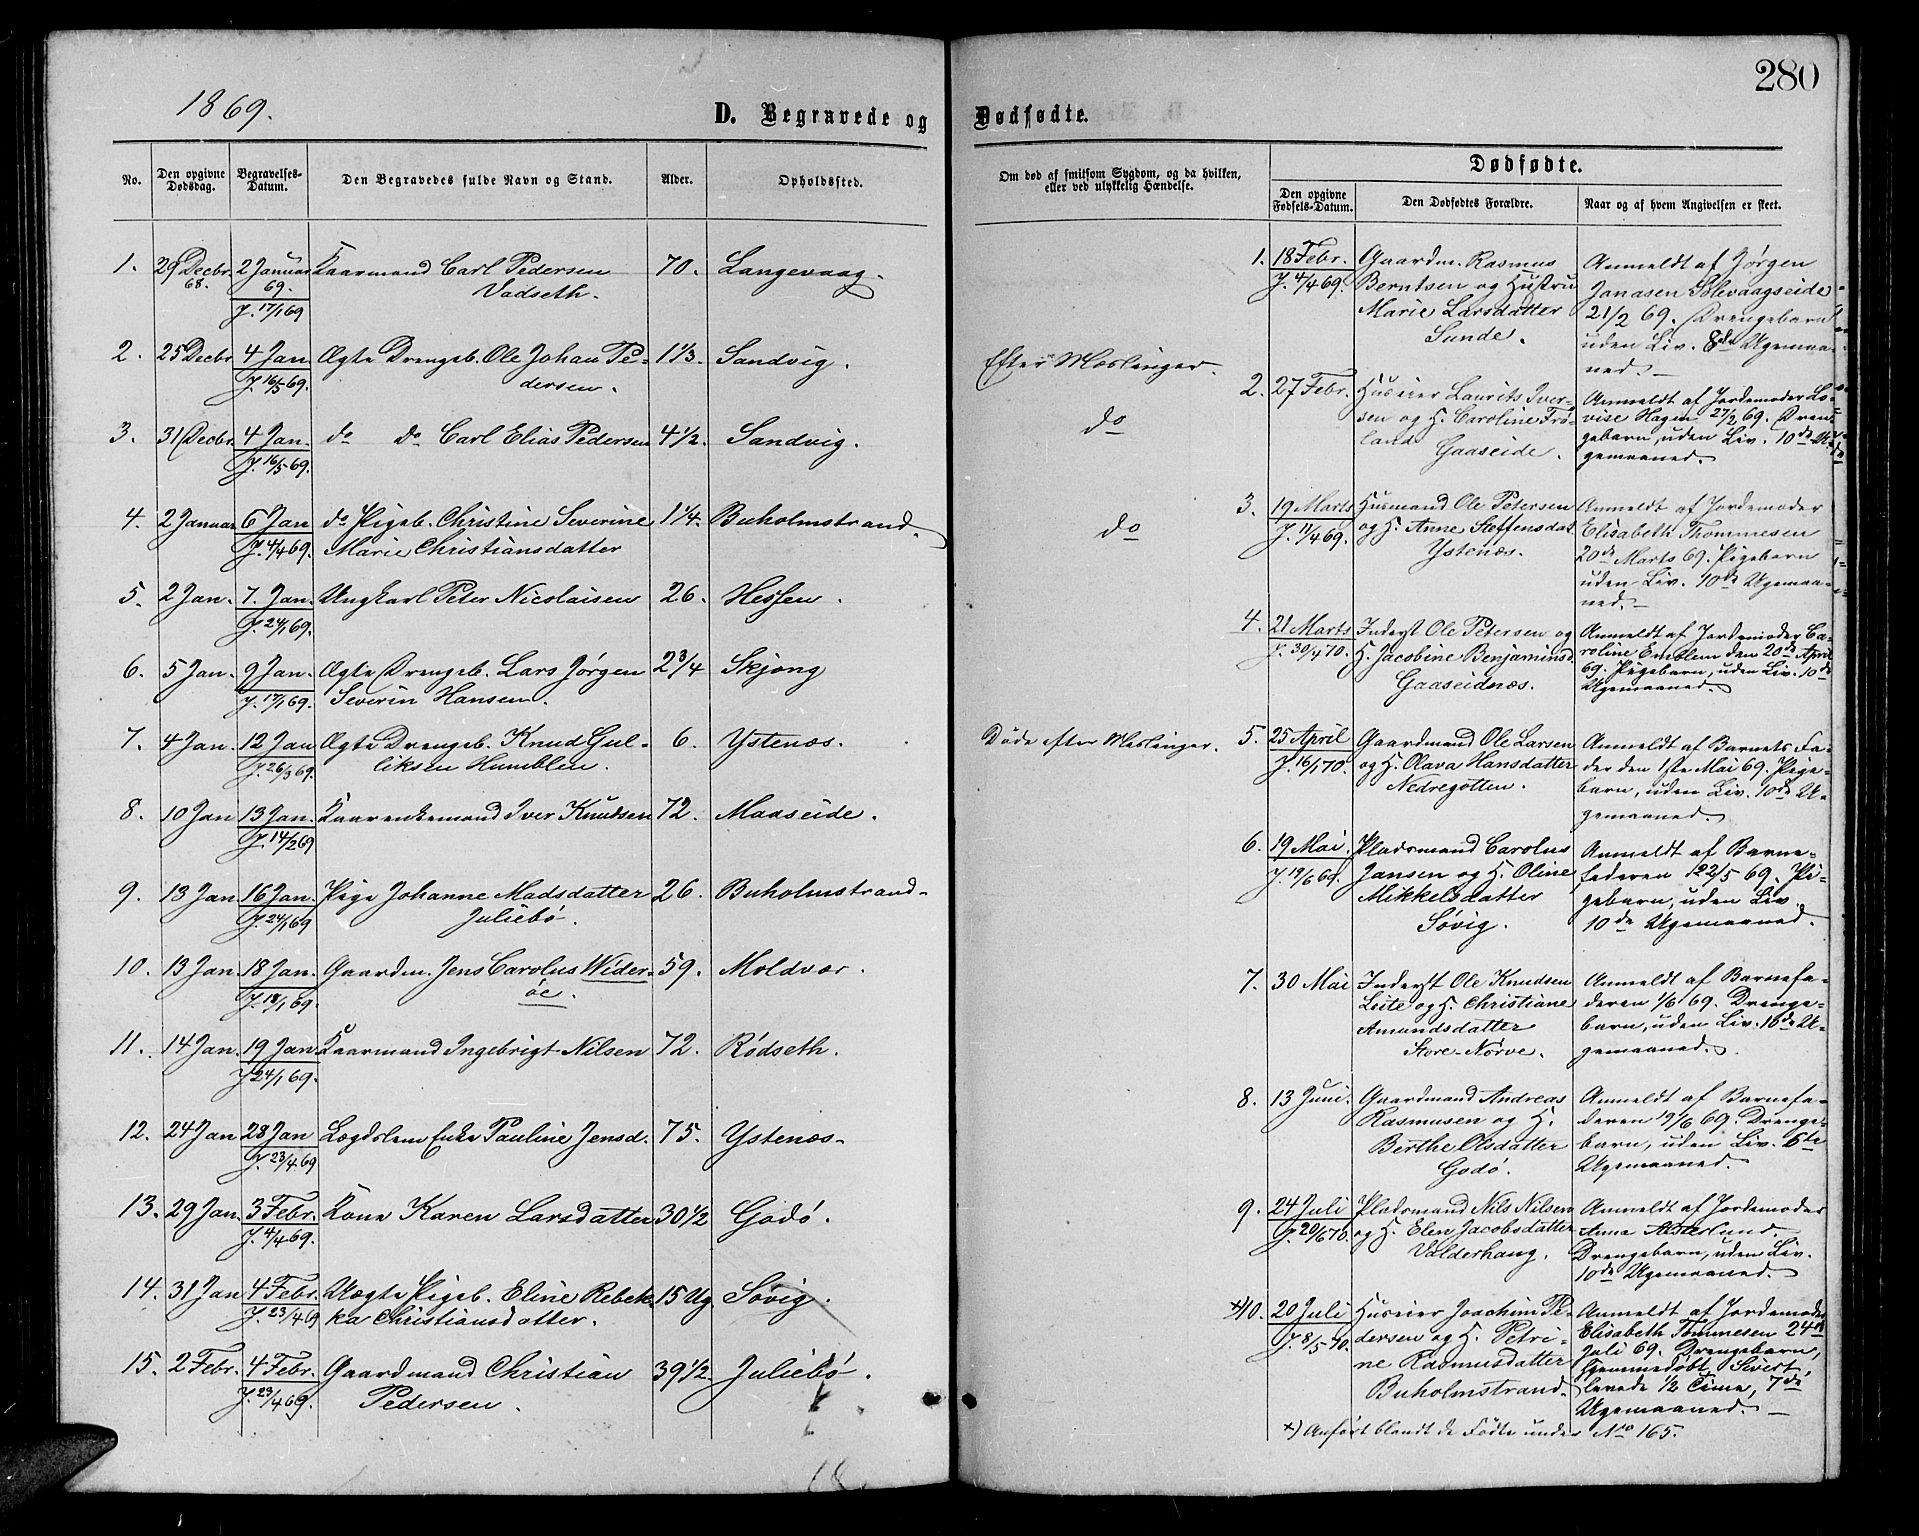 280
1869.
D. Begravede og Dødfødte.
No.
Den opgivne Dødsdag.
Begravelses-Datum.
Den Begravedes fulde Navn og Stand.
Alder.
Opholdssted.
Om død af smitsom Sygdom, og da hvilken,
eller ved ulykkelig Hændelse.
Dødfødte.
Den opgivne Fødsels-Datum.
Den Dødfødtes Forældre.
Naar og af hvem Angivelsen er skeet.
1. 29 Decbr. 2 Januar Kaarmand Carl Pedersen 70. Langevaag.
68. 69. Vadseth.
J. 17/1 69
2. 25 Decbr 4 Jan Ægte Drengeb. Ole Johan Pe- 1 1/3. Sandvig. Efter Mæslinger.
J. 16/5 69. dersen.
3. 31 Decbr. 4 Jan. do do Carl Elias Pedersen 4 1/2. Sandvig. do
J. 16/5 69.
4. 2 Januar 6 Jan do Pigeb. Christine Severine 1 1/4. Buholmstrand. do
J. 4/4 69. Marie Christiansdatter
5. 2 Jan. 7. Jan. Ungkarl Peter Nicolaisen 26. Hessen.
J. 24/1 69.
6. 5 Jan. 9 Jan. Ægte Drengeb. Lars Jørgen 2 3/4 Skjong
J. 17/1 69. Severin Hansen.
7. 4 Jan. 12 Jan Ægte Drengeb. Knud Gul- 6. Ystenæs. Døde efter Meslinger.
J. 26/3 69. liksen Humblen.
8. 10 Jan 13 Jan. Kaarenkemand Iver Knudsen 72. Maaseide.
J. 14/2 69
9. 13 Jan 16 Jan. Pige Johanne Madsdatter 26. Buholmstrand-
J. 24/1 69 Juliebø.
10. 13 Jan 18 Jan. Gaardm. Jens Carolus Wider- 59. Moldvær.
J. 18/1 69. øe.
11. 14 Jan. 19 Jan Kaarmand Ingebrigt Nilsen 72. Rødseth.
J 24/1 69.
12. 24 Jan 28 Jan Lægdslem Enke Pauline Jensd. 75. Ystenæs-
J. 23/4. 69
13. 29 Jan. 3 Febr. Kone Karen Larsdatter 30 1/2 Godø.
J. 4/4 69.
14. 31 Jan 4 Febr. Uægte Pigeb. Eline Rebek- 15 Ug. Søvig.
J. 23/4 69 ka Christiansdatter.
15. 2 Febr. 4 Febr. Gaardmand Christian 39 1/2 Juliebø.
J. 23/4 69. Pedersen.
1. 18 Febr. Gaardm. Rasmus Anmeldt af Jørgen
J. 4/4 69. Berntsen og Hustru Jonasen Blevaagseide
Marie Larsdatter 21/2 69. Drengebarn
Sunde. uden Liv. 8de Ugemaa-
ned.-
2. 27 Febr. Huseier Laurits Iver- Anmeldt af Jordemoder Lo-
sen og H. Caroline Frø- vise Hagen 27/2 69. Dren-
land gebarn, uden Liv. 10de U-
Gaaseide. gemaaned.
3. 19 Marts Husmand Ole Petersen Anmeldt af Jordemoder
J. 11/4 69. og H. Anne Steffensdat. Elisabeth Thommesen
Ystenæs. 20de Marts 69. Pigebarn
uden Liv. 10de Ugemaa-
ned.-
4. 21 Marts Inderst Ole Petersen og Anmeldt af Jordemoder Ca-
J. 30/4 70. H. Jacobine Benjaminsd. roline Emblem den 20de April
Gaaseidnæs. 69. Pigebarn, uden Liv. 10de
Ugemaaned.
5. 25 April Gaardmand Ole Larsen Anmeldt af Barnets Fa-
J. 16/1 70. og H. Olava Hansdatter der den 1ste Mai 69. Pige-
Nedregotten. barn, uden Liv. 10de U-
gemaaned.
6. 19 Mai. Pladsmand Carolus Anmeldt af Barne-
J. 19/6 69. Jansen og H. Oline faderen 22/5 69. Pi-
Mikkelsdatter gebarn, uden Liv.
Søvig. 10de Ugemaaned.
7. 30 Mai Inderst Ole Knudsen Anmeldt af Barnefa-
Leite og H. Christiane deren 1/6 69. Drenge-
Amundsdatter barn, uden Liv. 10de U-
Store-Nørve. gemaaned.
8. 13 Juni. Gaardmand Andreas Anmeldt af Barnefa-
Rasmusen og H. deren 19/6 69. Drenge-
Berthe Olsdatter barn, uden Liv. 6te
Godø. Ugemaaned.
9. 24 Juli Pladsmand Nils Nilsen Anmeldt af Jordemoder
J. 29/6 70. og H. Elen Jacobsdatter Anna Alsterlund.
Valderhaug. Drengebarn, uden Liv.
10de Ugemaaned.
*)10. 20 Juli Huseier Joachim Pe- Anmeldt af Jordemoder
J. 8/5 70. dersen og H. Petri- Elisabeth Tommesen 24de
ne Rasmusdatter Juli 69. Drengebarn,
Buholmstrand. hjemmedøbt Sivert,
levede 1/2 Time, 7de
Ugemaaned. -
*) Anført blandt de Fødte under No 165.